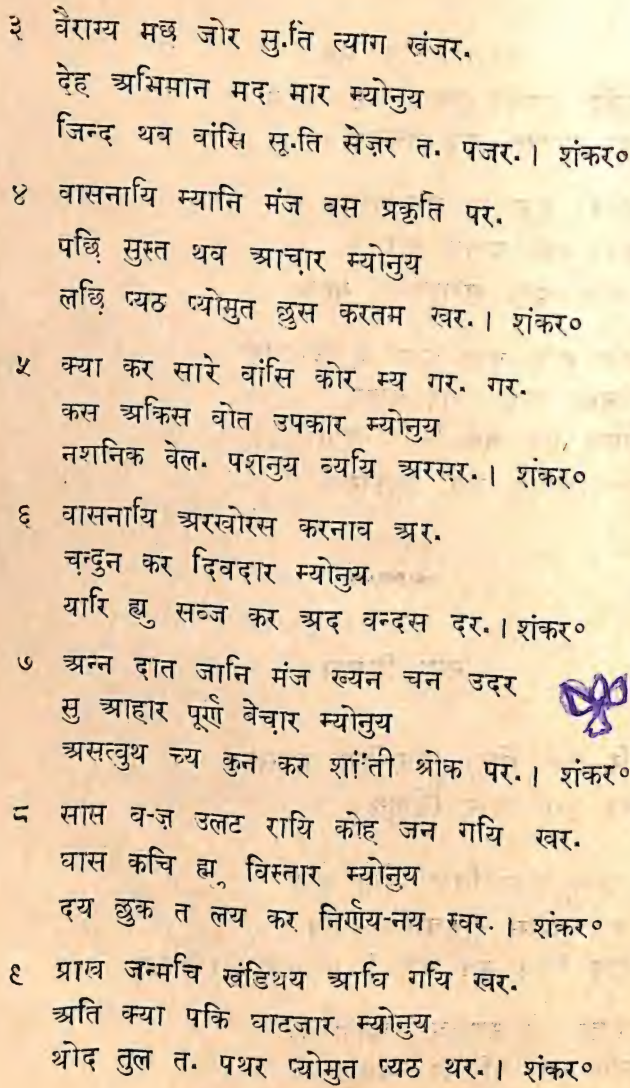 ३ वैराग्य मछ जोर सु.ति त्याग खंजर.
देह अभिमान मद मार म्योनुय
जिन्द थव वांसि सू.ति सेज़र त. पजर. । शंकर०
४ वासनायि म्यानि मंज बस प्रकृति पर.
पछि सुस्त थव आचार म्योनुय
लछि प्यठ प्योमुत छुस करतम खर. । शंकर०
५ क्या कर सारे वांसि कोर म्य गर. गर.
कस अकिस वोत उपकार म्योनुय
नशनिक वेल. पशनुय व्ययि अरसर. । शंकर०
६ वासनायि अरखोरस करनाव अर.
चन्दुन कर दिवदार म्योनुय
यारि ह्यु सब्ज कर अद वन्दस दर. । शंकर०
७ अन्न दात जानि मंज ख्यन चन उदर
सु आहार पूर्ण बेचार म्योनुय
असत्वुथ च्य कुन कर शां'ती श्रोक पर. । शंकर०
८ सास व-ज़ उलट रायि कोह जन गयि खर.
घास कचि ह्यु विस्तार म्योनुय
दय छुक त लय कर निर्णय-नय स्वर. । शंकर०
९ प्राख जन्मचि खंडिथय आघि गयि खर.
अति क्या पकि घाटजार म्योनुय
थोद तुल त. पथर प्योमुत प्यठ थर. । शंकर०